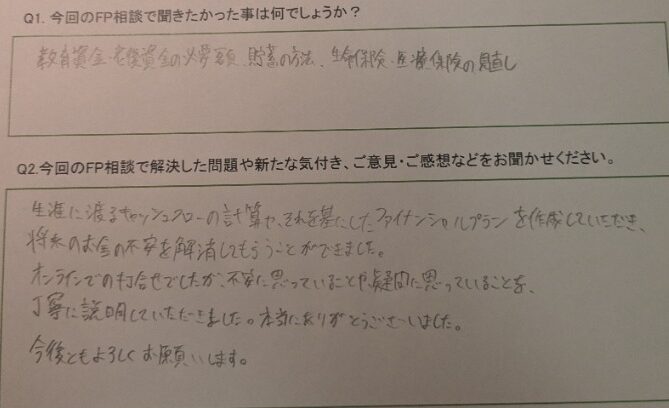 Q1. 今回のFP相談で聞きたかった事は何でしょうか？
教育資金・老後資金の必要額、貯蓄の方法、生命保険・医療保険の見直し
Q2.今回のFP相談で解決した問題や新たな気付き、ご意見・ご感想などをお聞かせください。
生涯に渡るキャッシュフローの計算や、それを基にしたファイナンシャルプランを作成していただき、
将来のお金の不安を解消してもらうことができました。
オンラインでの打合せでしたが、不安に思っていることや疑問に思っていることを、
丁寧に説明していただきました。本当にありがとうございました。
今後ともよろしくお願いします。